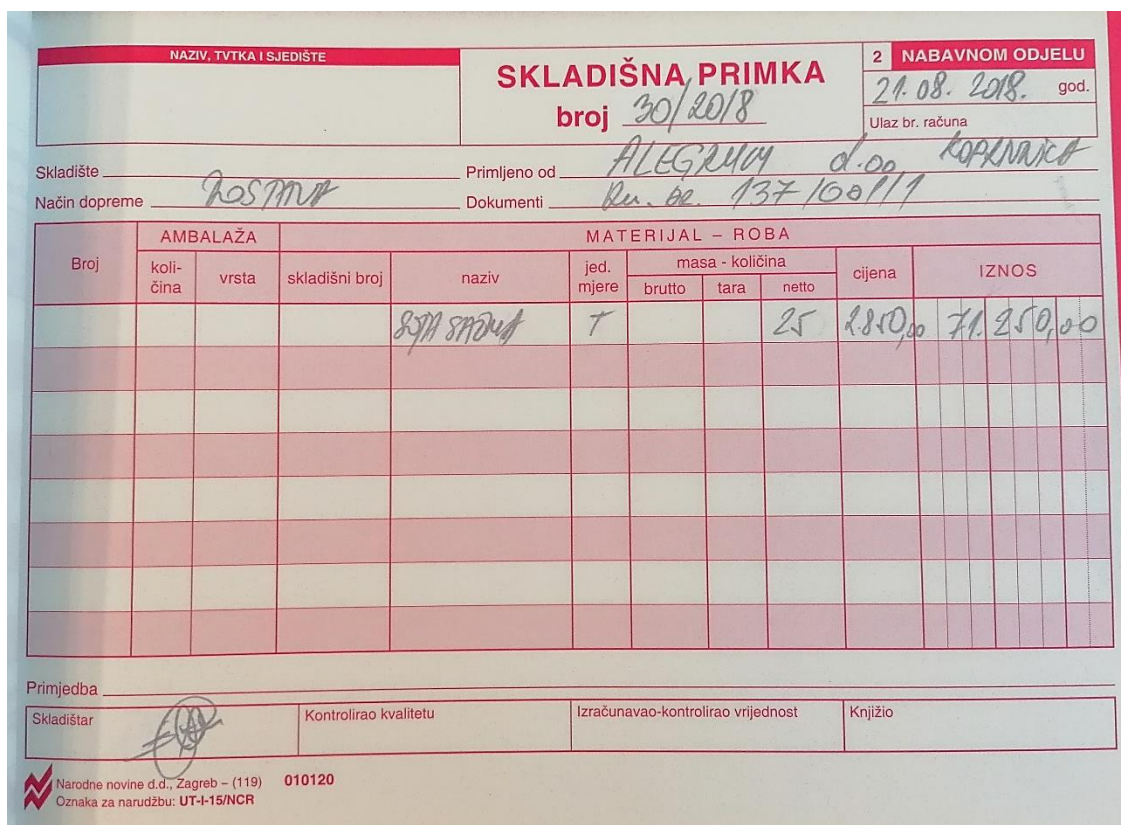 NAZIV, TVTKA I SJEDIŠTE
SKLADIŠNA PRIMKA
broj 30/2018
2 NABAVNOM ODJELU
21.08. 2018. god.
Ulaz br. računa
Skladište
Primljeno od d.oo
Način dopreme
Dokumenti br. 137/001/1
Broj AMBALAŽA MATERIJAL – ROBA
koli-čina vrsta skladišni broj naziv jed. mjere masa - količina cijena IZNOS
brutto tara netto
T 25 2.850,00 71.250,00
Primjedba
Skladištar Kontrolirao kvalitetu Izračunavao-kontrolirao vrijednost Knjižio
Narodne novine d.d., Zagreb – (119) 010120
Oznaka za narudžbu: UT-I-15/NCR